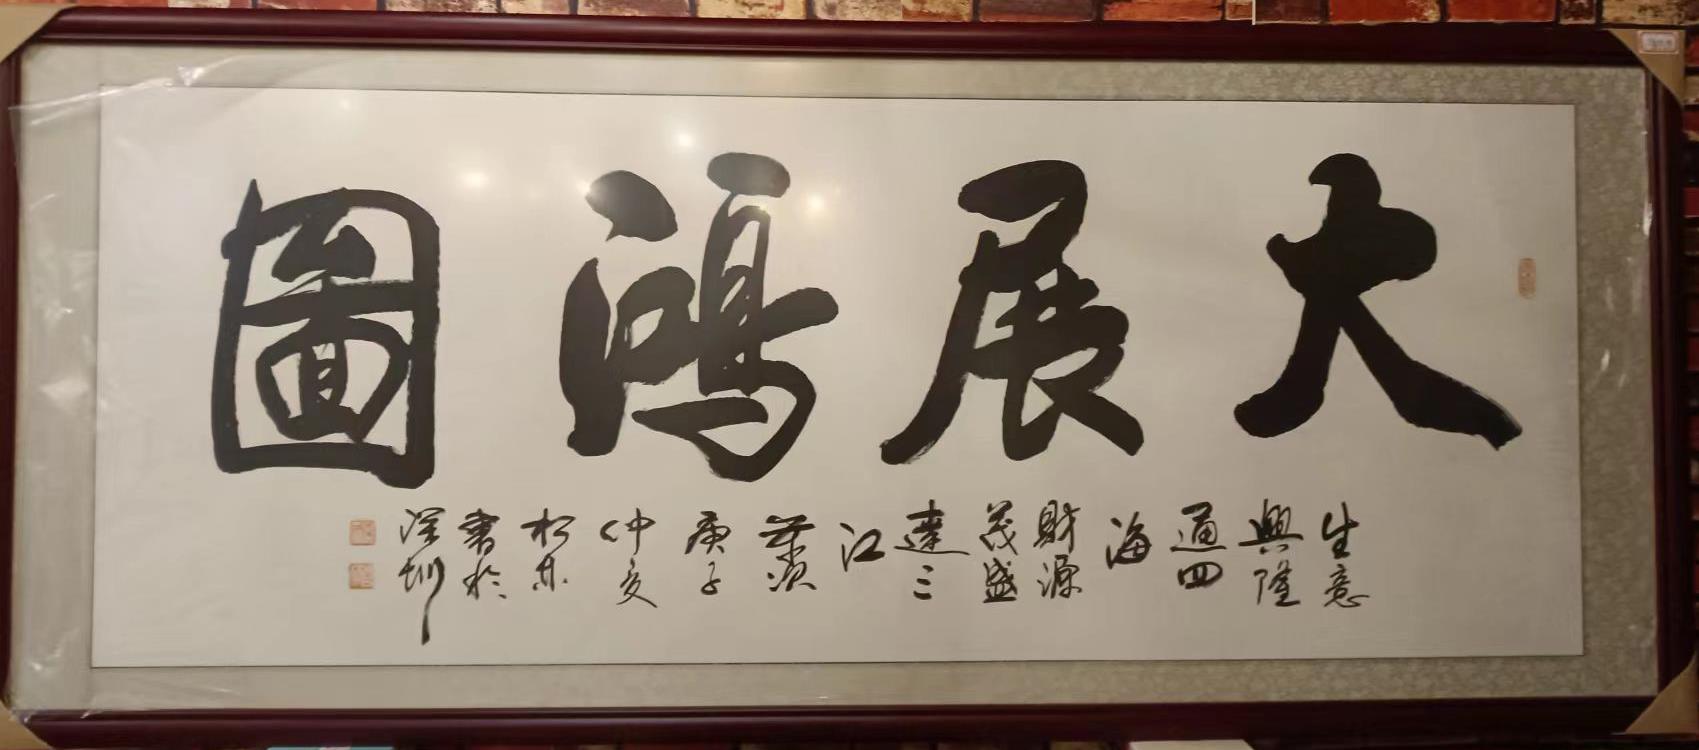 大展鴻圖
生意
興隆
通四
海
財源
茂盛
達三
江
歲次
庚子
仲夏
松林
書於
深圳